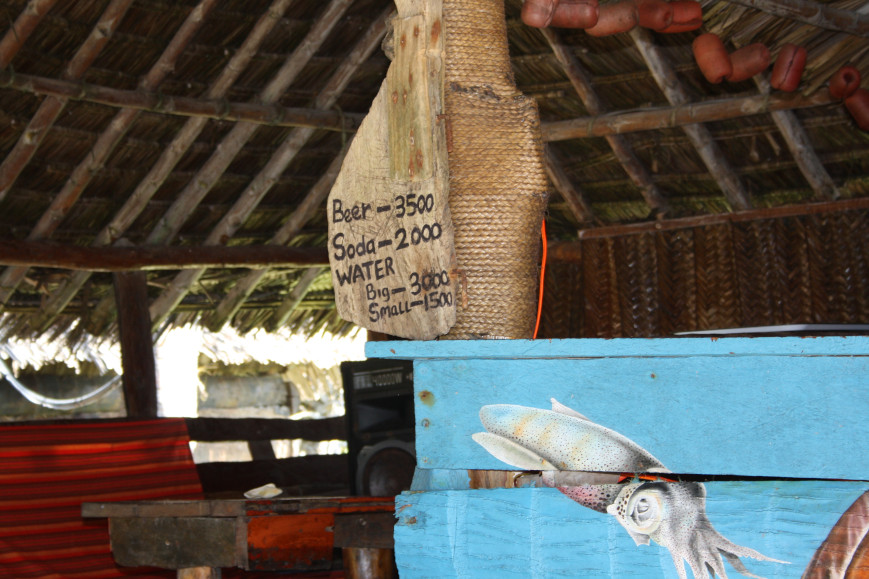 Beer – 3500
Soda – 2000
WATER
Big – 3000
Small – 1500